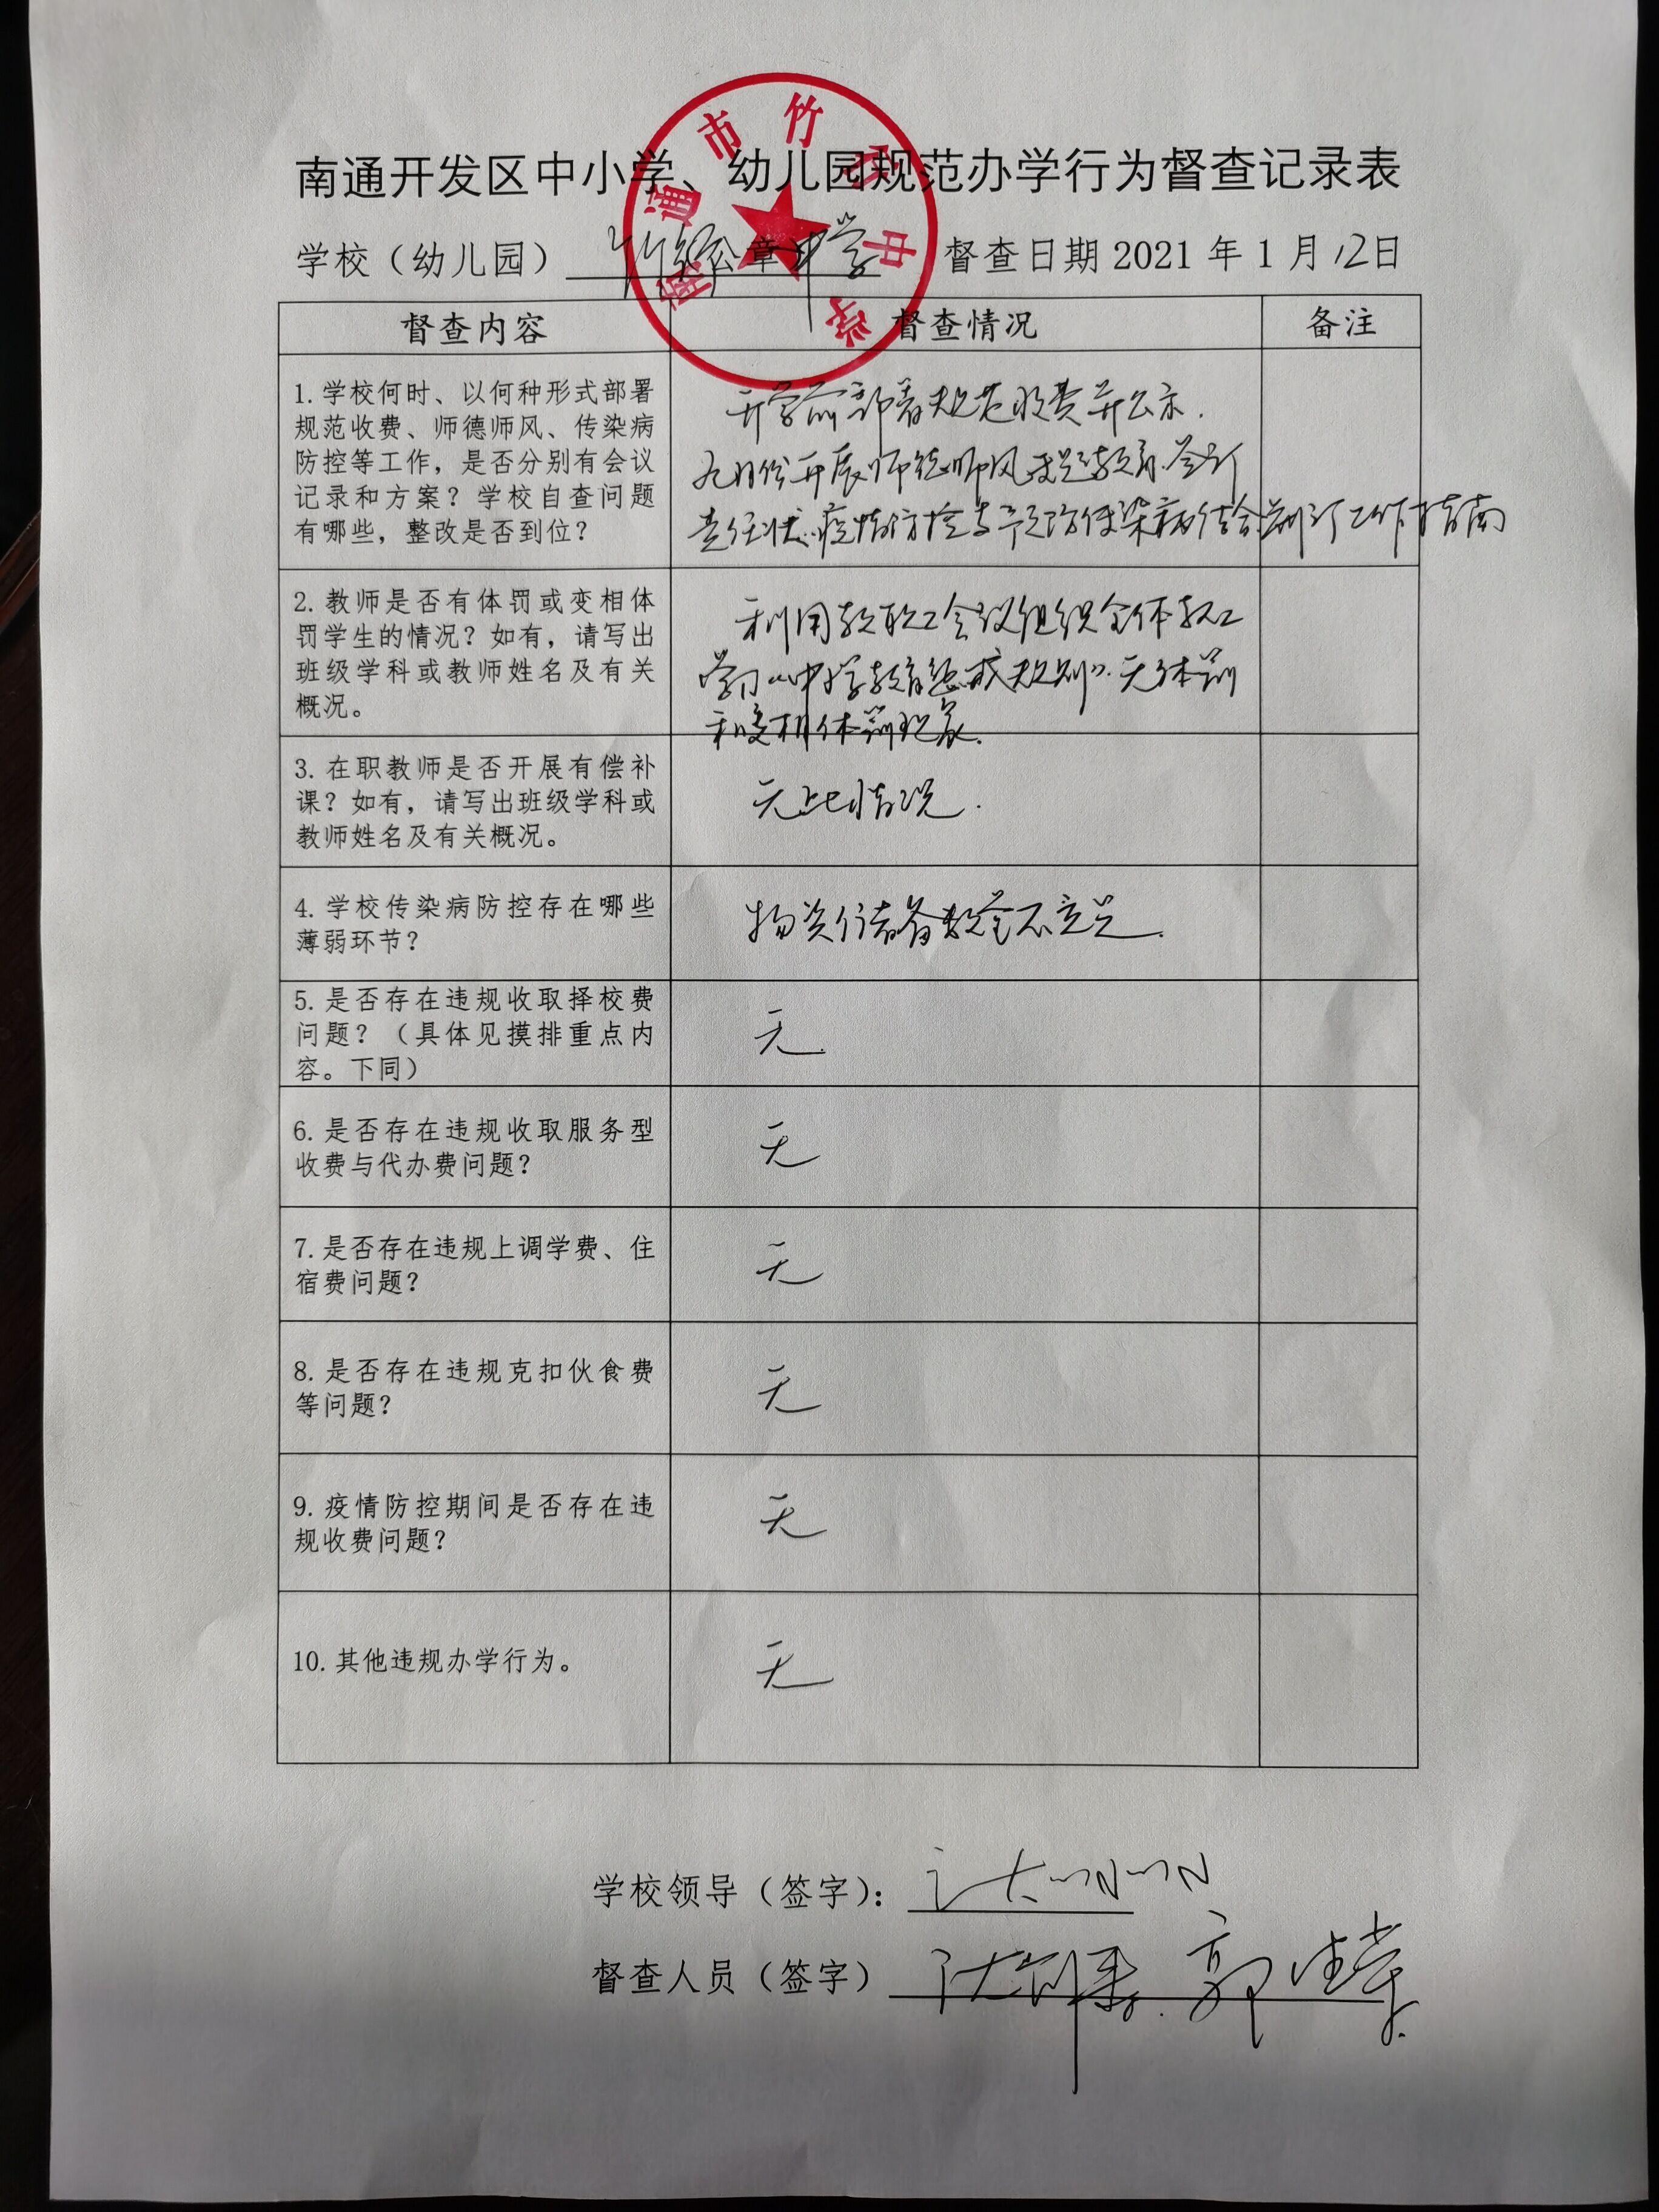 南通开发区中小学、幼儿园规范办学行为督查记录表
南通市竹行中学
学校（幼儿园）竹行 公章 中学 督查日期 2021 年 1 月 12 日
督查内容 督查情况 备注
1. 学校何时、以何种形式部署
规范收费、师德师风、传染病
防控等工作，是否分别有会议
记录和方案？学校自查问题
有哪些，整改是否到位？
开学前部署规范收费并公示.
九月份开展师德师风专题教育.签订
责任状.疫情防控与预防传染病结合制订工作指南
2. 教师是否有体罚或变相体
罚学生的情况？如有，请写出
班级学科或教师姓名及有关
概况。
利用教职工会议组织全体教工
学习《中小学教育惩戒规则》.无体罚
和变相体罚现象.
3. 在职教师是否开展有偿补
课？如有，请写出班级学科或
教师姓名及有关概况。
无此情况.
4. 学校传染病防控存在哪些
薄弱环节？
物资储备数量不充足.
5. 是否存在违规收取择校费
问题？（具体见摸排重点内
容。下同）
无.
6. 是否存在违规收取服务型
收费与代办费问题？
无
7. 是否存在违规上调学费、住
宿费问题？
无
8. 是否存在违规克扣伙食费
等问题？
无
9. 疫情防控期间是否存在违
规收费问题？
无
10. 其他违规办学行为。
无
学校领导（签字）：
督查人员（签字）